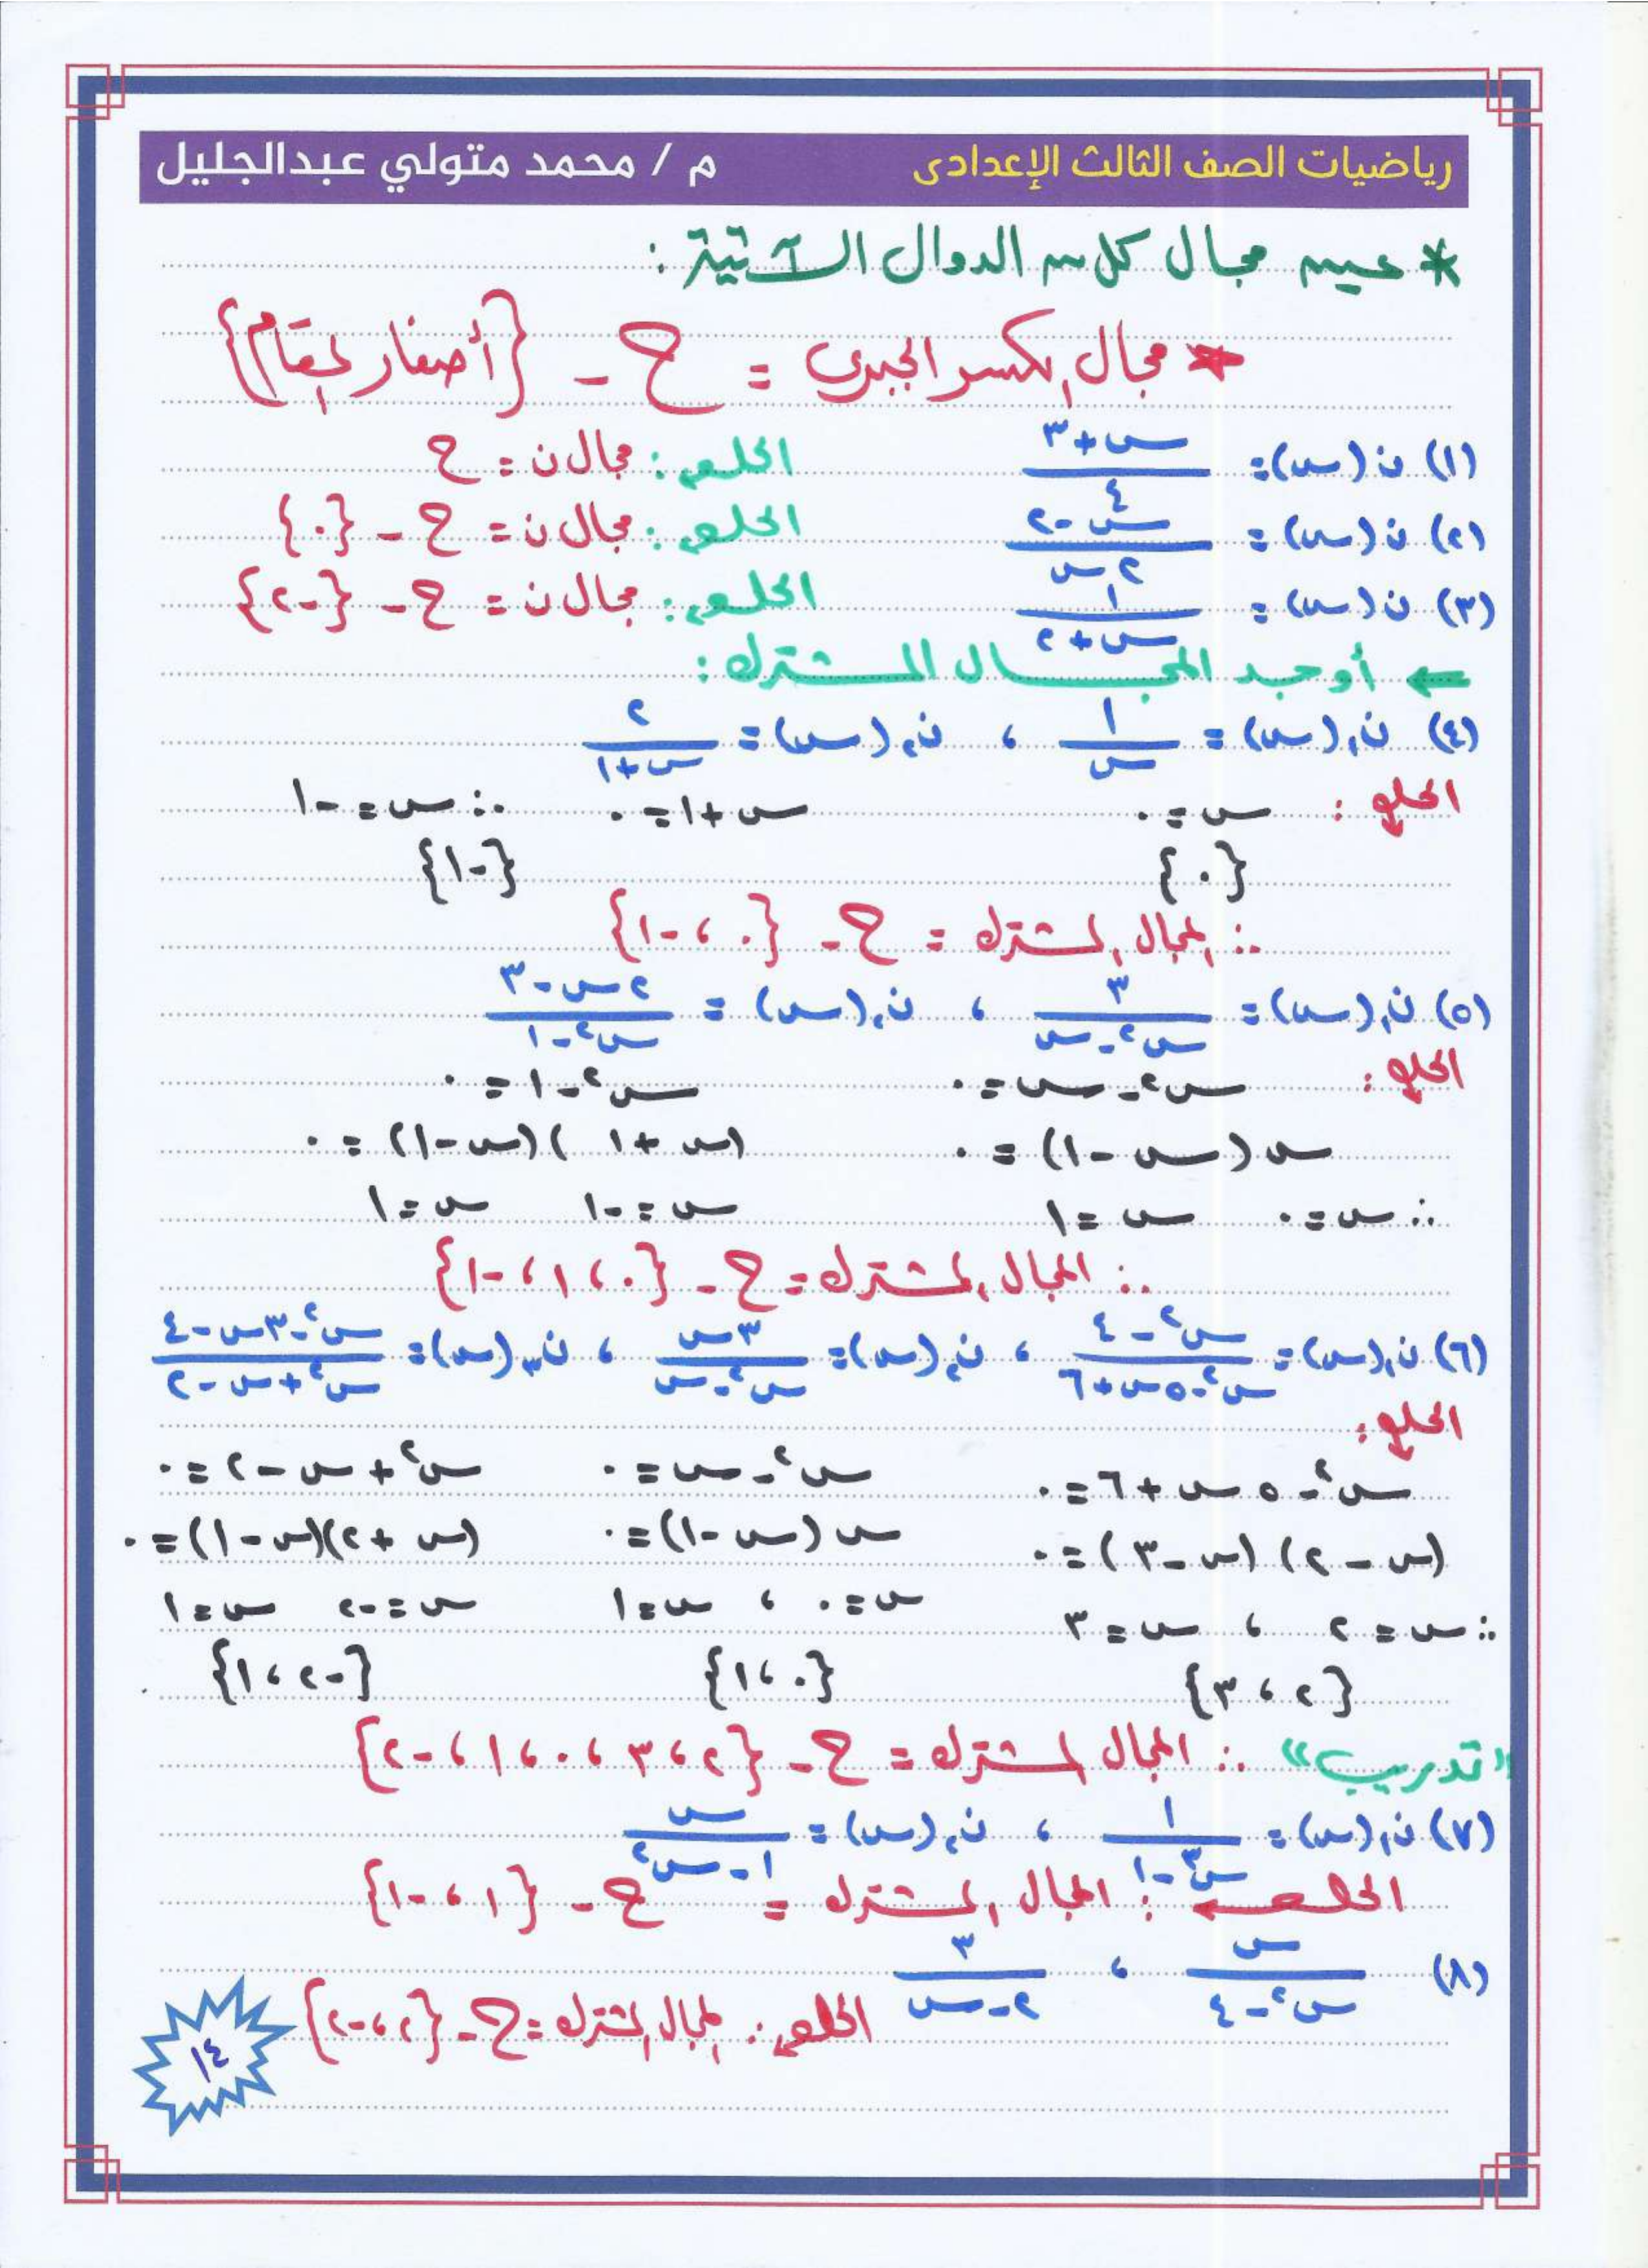 رياضيات الصف الثالث الإعدادى م / محمد متولي عبدالجليل
* عين مجال كل من الدوال الآتية :
* مجال الكسر الجبرى = ح - {أصفار المقام}
(١) ن(س) = (س + ٣)/٤ الحل : مجال ن = ح
(٢) ن(س) = (س - ٢)/(٢ س) الحل : مجال ن = ح - {٠}
(٣) ن(س) = ١/(س + ٢) الحل : مجال ن = ح - {-٢}
← أوجد المجال المشترك :
(٤) ن₁(س) = ١/س ، ن₂(س) = ٢/(س + ١)
الحل : س = ٠ س + ١ = ٠ ∴ س = -١
{٠} {-١}
∴ المجال المشترك = ح - {٠ ، -١}
(٥) ن₁(س) = ٣/(س² - س) ، ن₂(س) = (٢س - ٣)/(س² - ١)
الحل : س² - س = ٠ س² - ١ = ٠
س (س - ١) = ٠ (س + ١)(س - ١) = ٠
∴ س = ٠ س = ١ س = -١ س = ١
∴ المجال المشترك = ح - {٠ ، ١ ، -١}
(٦) ن₁(س) = (س² - ٤)/(س² - ٥س + ٦) ، ن₂(س) = ٣س/(س² - س) ، ن₃(س) = (س² - ٣س - ٤)/(س² + س - ٢)
الحل :
س² - ٥ س + ٦ = ٠ س² - س = ٠ س² + س - ٢ = ٠
(س - ٢) (س - ٣) = ٠ س (س - ١) = ٠ (س + ٢)(س - ١) = ٠
∴ س = ٢ ، س = ٣ س = ٠ ، س = ١ س = -٢ س = ١
{٢ ، ٣} {٠ ، ١} {-٢ ، ١}
"تدريب" ∴ المجال المشترك = ح - {٢ ، ٣ ، ٠ ، ١ ، -٢}
(٧) ن₁(س) = ١/(س³ - ١) ، ن₂(س) = س/(١ - س²)
الحل : المجال المشترك = ح - {١ ، -١}
(٨) س/(س² - ٤) ، ٣/(٢ - س) الحل : المجال المشترك = ح - {٢ ، -٢}
١٤